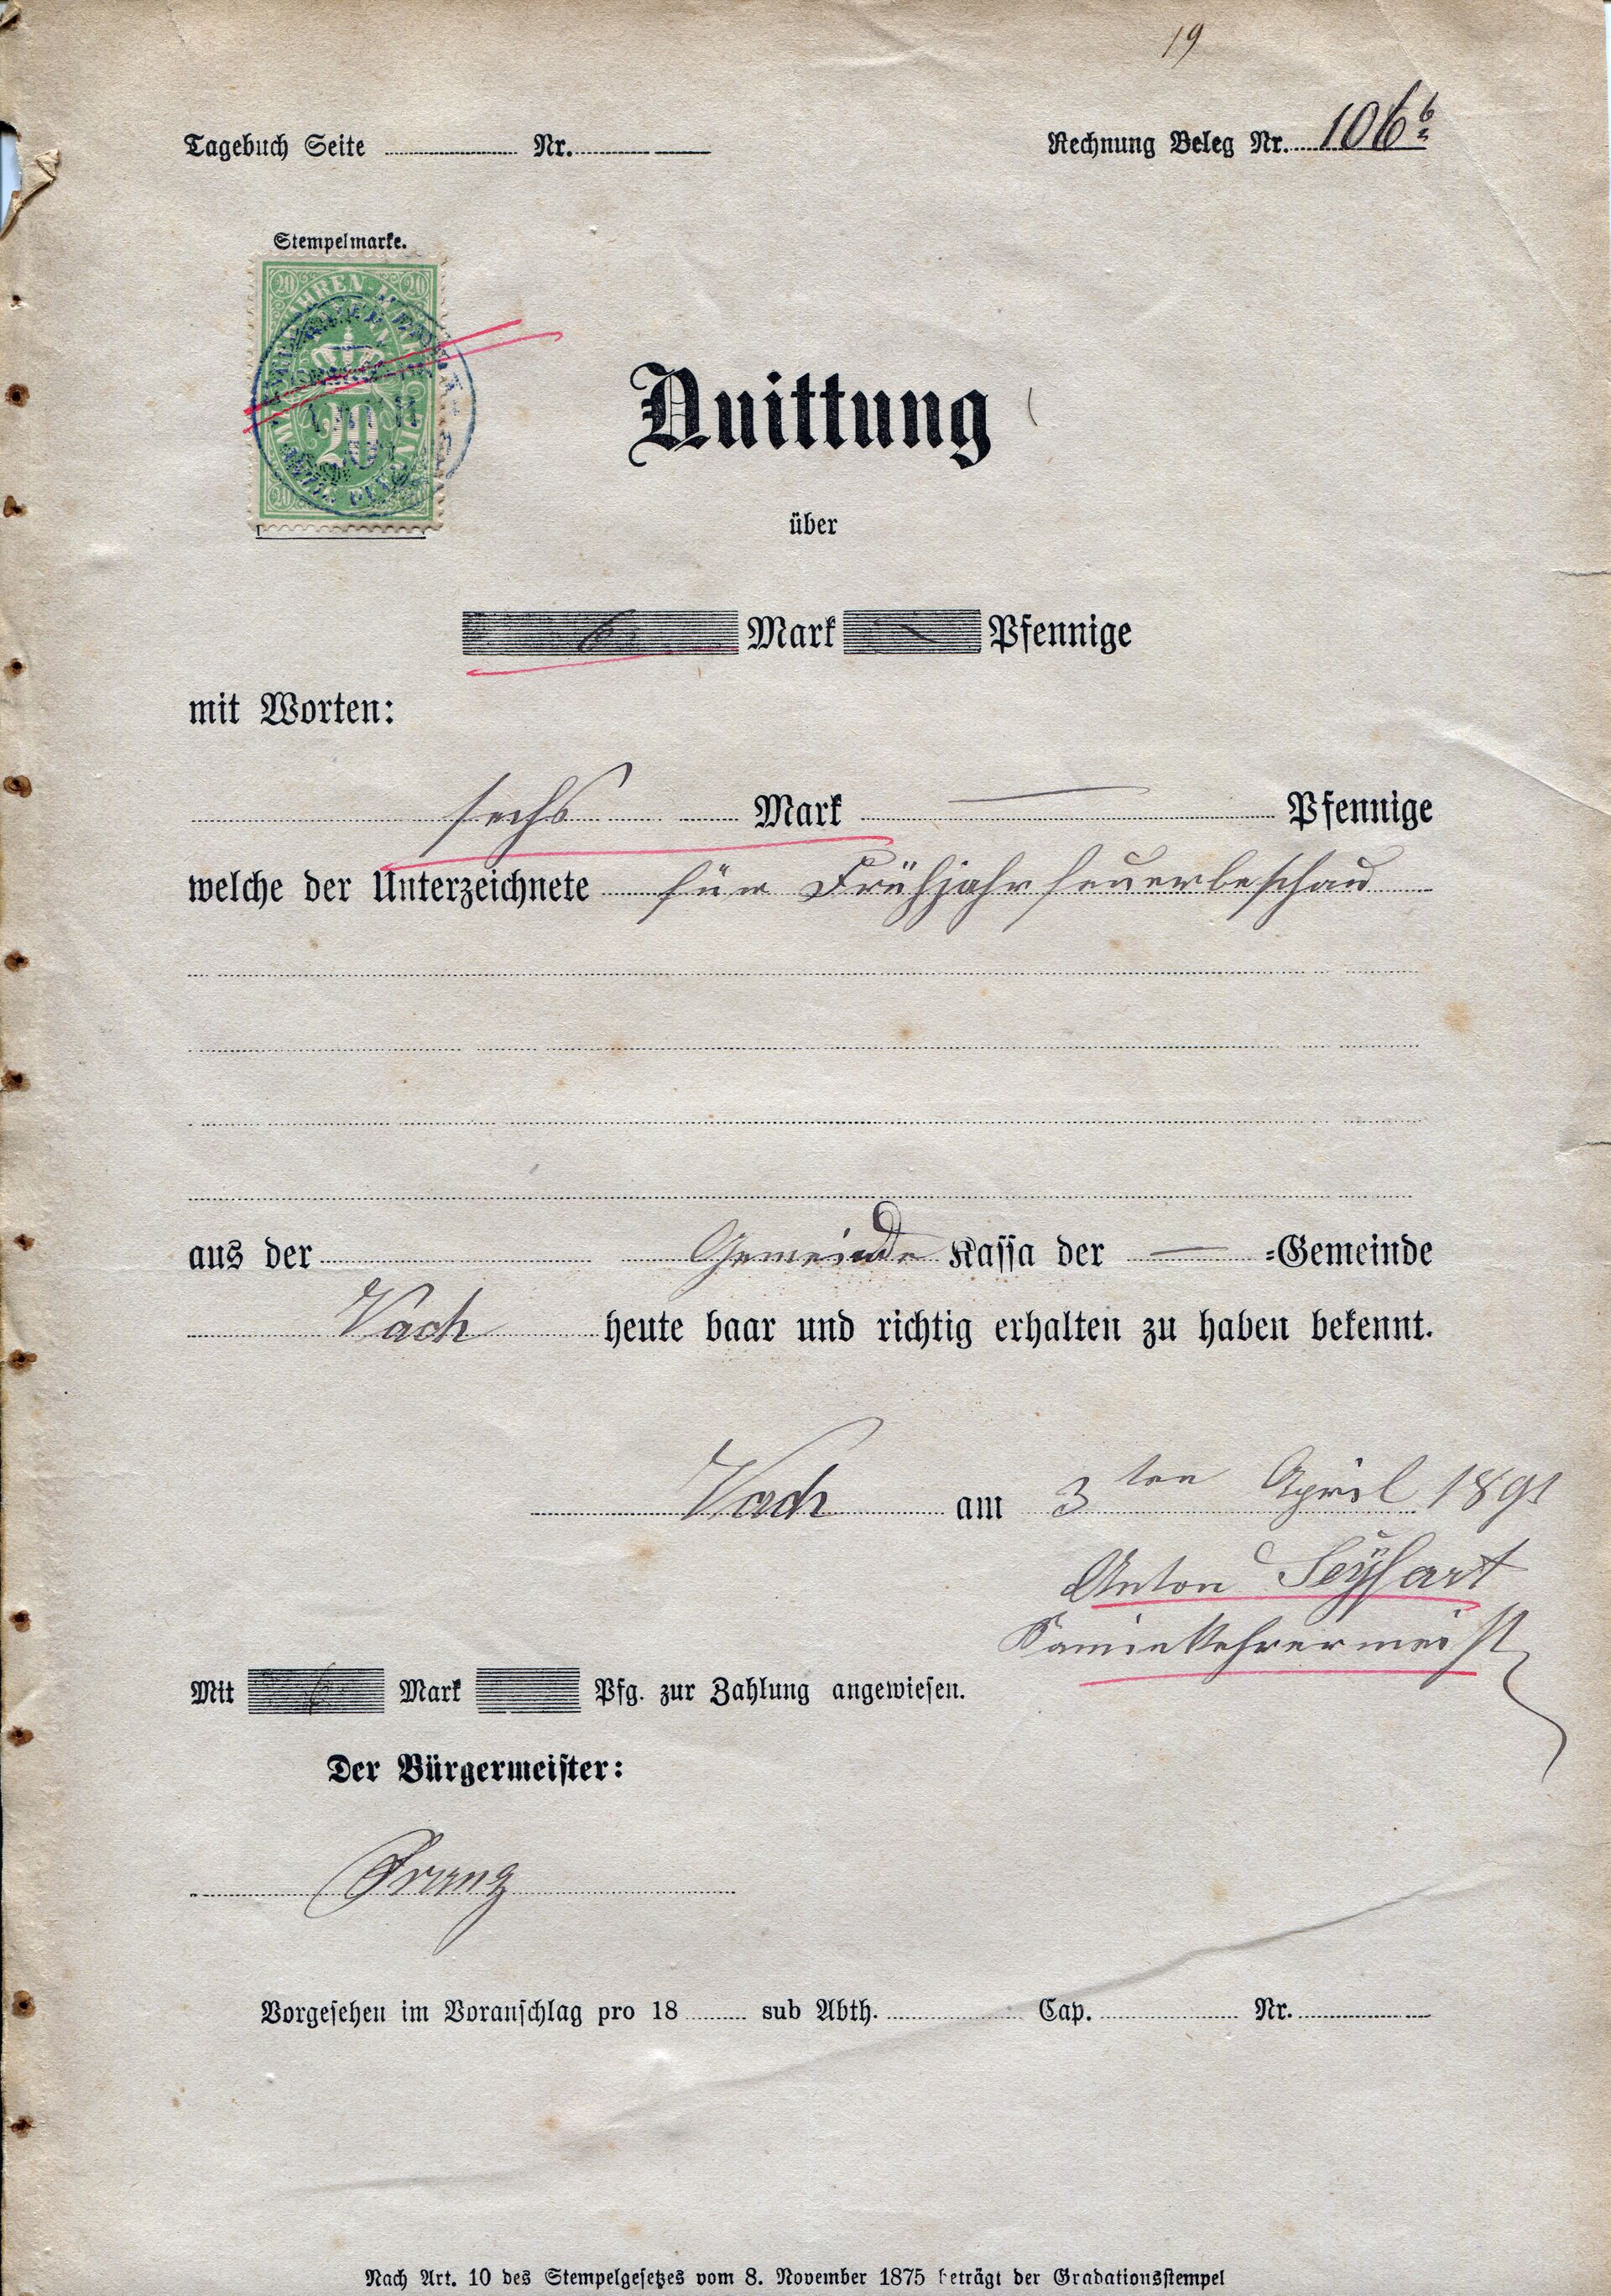 19
Tagebuch Seite Nr. Rechnung Beleg Nr. 106 b
Stempelmarke.
20 20
20
20
Quittung
über
6 Mark — Pfennige
mit Worten:
sechs Mark — Pfennige
welche der Unterzeichnete für Frühjahrfeuerbeschau
aus der Gemeinde Kassa der — =Gemeinde
Vach heute baar und richtig erhalten zu haben bekennt.
Vach am 3ten April 1891
Anton Seyfart
Kaminkehrermeistr
Mit 6 Mark Pfg. zur Zahlung angewiesen.
Der Bürgermeister:
Vorgesehen im Voranschlag pro 18 sub Abth. Cap. Nr.
Nach Art. 10 des Stempelgesetzes vom 8. November 1875 beträgt der Gradationsstempel